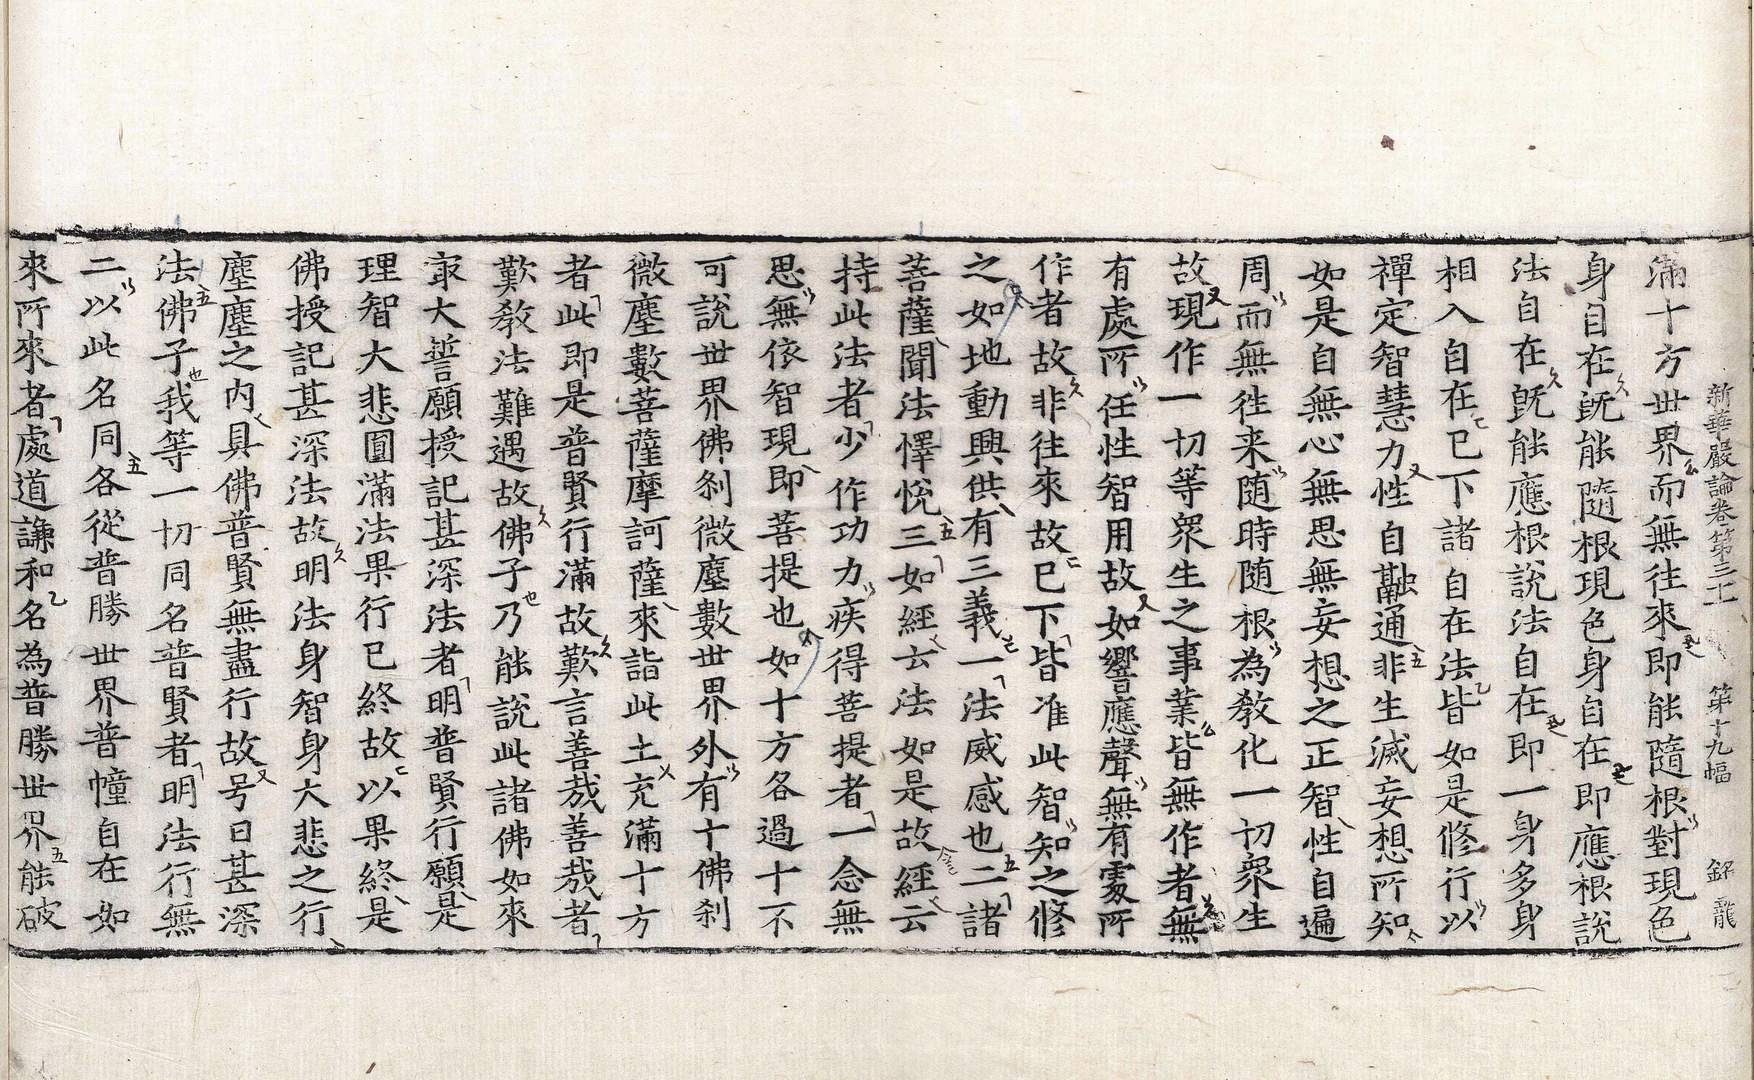 新華嚴論卷第三十 第十九幅 銘 龍
滿十方世界而無往來即能隨根對現色
身自在既能隨根現色身自在即應根說
法自在既能應根說法自在即一身多身
相入自在已下諸自在法皆如是修行以
禪定智慧力性自融通非生滅妄想所知
如是自無心無思無妄想之正智性自遍
周而無往来随時随根為教化一切衆生
故現作一切等衆生之事業皆無作者無
有處所任性智用故如響應聲無有處所
作者故非往來故已下皆准此智知之修
之如地動興供有三義一法威感也二諸
菩薩聞法懌悅三如經云法如是故經云
持此法者少作功力疾得菩提者一念無
思無依智現即菩提也如十方各過十不
可說世界佛剎微塵數世界外有十佛剎
微塵數菩薩摩訶薩來詣此土充滿十方
者此即是普賢行滿故歎言善哉善哉者
歎教法難遇故佛子乃能說此諸佛如來
㝡大誓願授記甚深法者明普賢行願是
理智大悲圓滿法果行已終故以果終是
佛授記甚深法故明法身智身大悲之行
塵塵之內具佛普賢無盡行故号曰甚深
法佛子我等一切同名普賢者明法行無
二以此名同各從普勝世界普幢自在如
來所來者處道謙和名為普勝世界能破